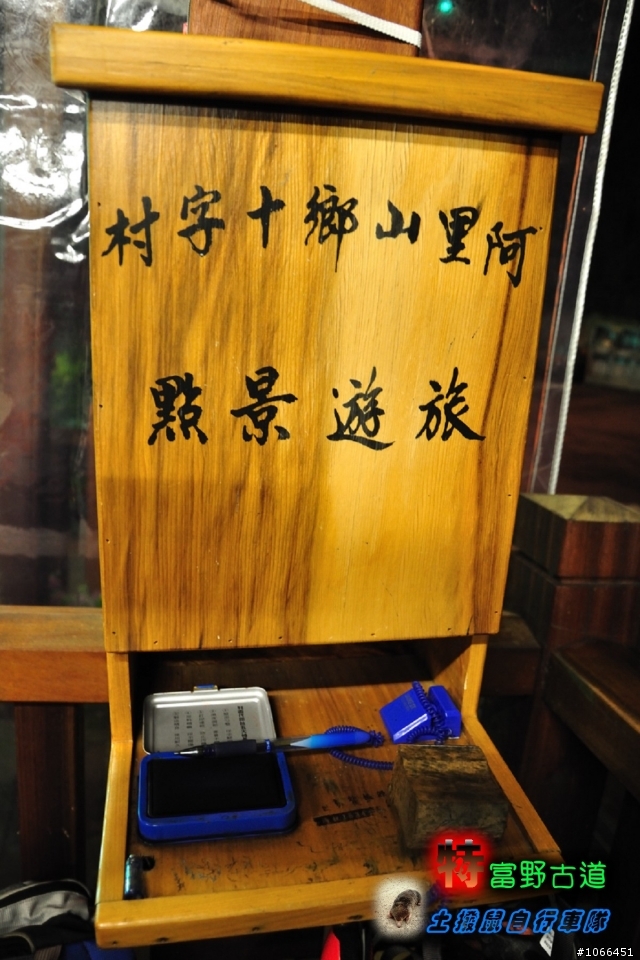 阿里山鄉十字村
旅遊景點
特富野古道
土撥鼠自行車隊
#1066451